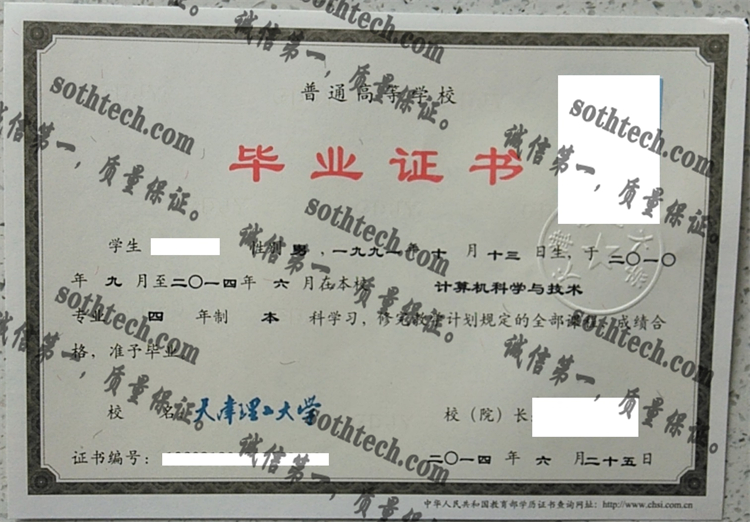 普通高等学校
毕业证书
学生 性别 男 ，一九九一年 十 月 十三 日生，于 二〇一〇
年 九 月至二〇一四年 六 月在本校 计算机科学与技术
专业 四 年制 本 科学习，修完教学计划规定的全部课程，成绩合
格，准予毕业
校 名：天津理工大学 校（院）长：
证书编号：
二〇一四 年 六 月二十五日
中华人民共和国教育部学历证书查询网址：http://www.chsi.com.cn
sothtech.com
诚信第一，质量保证。
sothtech.com
诚信第一，质量保证。
sothtech.com
诚信第一，质量保证。
sothtech.com
诚信第一，质量保证。
sothtech.com
诚信第一，质量保证。
sothtech.com
诚信第一，质量保证。
sothtech.com
诚信第一，质量保证。
sothtech.com